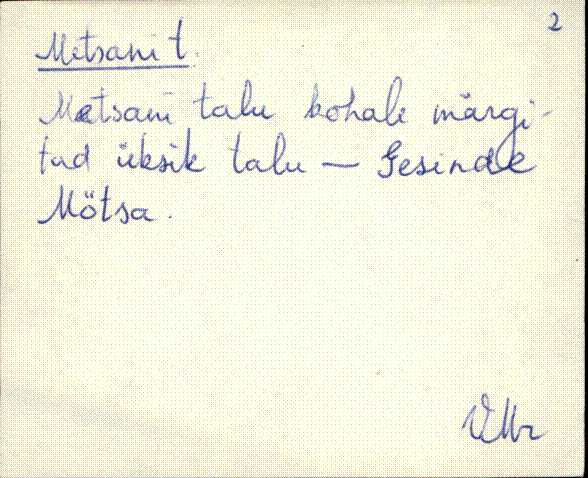 2
Metsani t.
Metsani talu kohale märgi-
tud üksik talu — Gesinde
Mötsa.